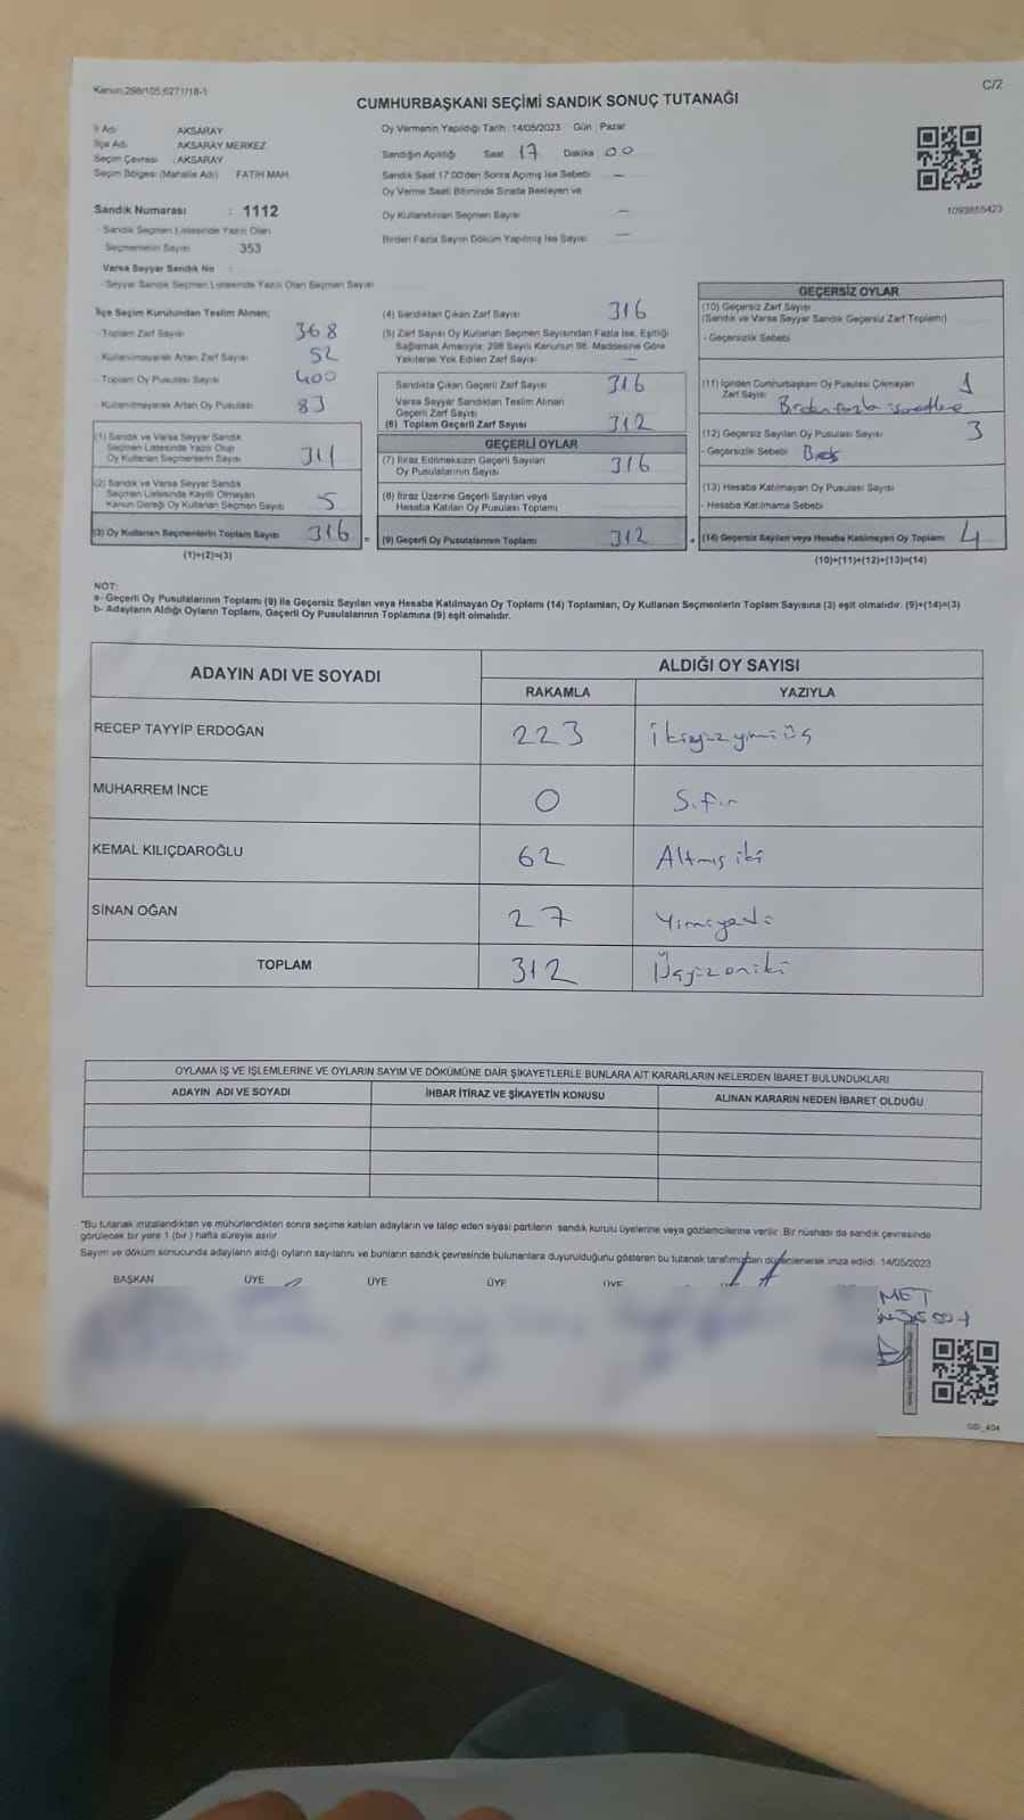 Kanun:298/105,6271/18-1
C/2
CUMHURBAŞKANI SEÇİMİ SANDIK SONUÇ TUTANAĞI
İl Adı AKSARAY
İlçe Adı AKSARAY MERKEZ
Seçim Çevresi : AKSARAY
Seçim Bölgesi (Mahalle Adı) FATİH MAH.
Sandık Numarası : 1112
Sandık Seçmen Listesinde Yazılı Olan
Seçmenlerin Sayısı 353
Varsa Seyyar Sandık No
- Seyyar Sandık Seçmen Listesinde Yazılı Olan Seçmen Sayısı
Oy Vermenin Yapıldığı Tarih: 14/05/2023 Gün : Pazar
Sandığın Açıldığı Saat 17 Dakika 00
Sandık Saat 17:00'den Sonra Açılmış İse Sebebi —
Oy Verme Saati Bitiminde Sırada Bekleyen ve
Oy Kullandırılan Seçmen Sayısı —
Birden Fazla Sayım Döküm Yapılmış İse Sayısı —
1093855423
İlçe Seçim Kurulundan Teslim Alınan;
- Toplam Zarf Sayısı 368
- Kullanılmayarak Artan Zarf Sayısı 52
- Toplam Oy Pusulası Sayısı 400
- Kullanılmayarak Artan Oy Pusulası 83
(1) Sandık ve Varsa Seyyar Sandık
Seçmen Listesinde Yazılı Olup
Oy Kullanan Seçmenlerin Sayısı 311
(2) Sandık ve Varsa Seyyar Sandık
Seçmen Listesinde Kayıtlı Olmayan
Kanun Gereği Oy Kullanan Seçmen Sayısı 5
(3) Oy Kullanan Seçmenlerin Toplam Sayısı 316
(1)+(2)=(3)
(4) Sandıktan Çıkan Zarf Sayısı 316
(5) Zarf Sayısı Oy Kullanan Seçmen Sayısından Fazla İse, Eşitliği
Sağlamak Amacıyla; 298 Sayılı Kanunun 98. Maddesine Göre
Yakılarak Yok Edilen Zarf Sayısı —
Sandıkta Çıkan Geçerli Zarf Sayısı 316
Varsa Seyyar Sandıktan Teslim Alınan
Geçerli Zarf Sayısı
(6) Toplam Geçerli Zarf Sayısı 312
GEÇERLİ OYLAR
(7) İtiraz Edilmeksizin Geçerli Sayılan
Oy Pusulalarının Sayısı 316
(8) İtiraz Üzerine Geçerli Sayılan veya
Hesaba Katılan Oy Pusulası Toplamı
= (9) Geçerli Oy Pusulalarının Toplamı 312
GEÇERSİZ OYLAR
(10) Geçersiz Zarf Sayısı
(Sandık ve Varsa Seyyar Sandık Geçersiz Zarf Toplamı)
- Geçersizlik Sebebi
(11) İçinden Cumhurbaşkanı Oy Pusulası Çıkmayan
Zarf Sayısı 1
(12) Geçersiz Sayılan Oy Pusulası Sayısı 3
- Geçersizlik Sebebi
(13) Hesaba Katılmayan Oy Pusulası Sayısı
- Hesaba Katılmama Sebebi
+ (14) Geçersiz Sayılan veya Hesaba Katılmayan Oy Toplamı 4
(10)+(11)+(12)+(13)=(14)
NOT:
a- Geçerli Oy Pusulalarının Toplamı (9) ile Geçersiz Sayılan veya Hesaba Katılmayan Oy Toplamı (14) Toplamları, Oy Kullanan Seçmenlerin Toplam Sayısına (3) eşit olmalıdır. (9)+(14)=(3)
b- Adayların Aldığı Oyların Toplamı, Geçerli Oy Pusulalarının Toplamına (9) eşit olmalıdır.
ADAYIN ADI VE SOYADI
ALDIĞI OY SAYISI
RAKAMLA YAZIYLA
RECEP TAYYİP ERDOĞAN 223 ikiyüzyirmiüç
MUHARREM İNCE 0 Sıfır
KEMAL KILIÇDAROĞLU 62 Altmış iki
SİNAN OĞAN 27 Yirmiyedi
TOPLAM 312 Üçyüzoniki
OYLAMA İŞ VE İŞLEMLERİNE VE OYLARIN SAYIM VE DÖKÜMÜNE DAİR ŞİKAYETLERLE BUNLARA AİT KARARLARIN NELERDEN İBARET BULUNDUKLARI
ADAYIN ADI VE SOYADI İHBAR İTİRAZ VE ŞİKAYETİN KONUSU ALINAN KARARIN NEDEN İBARET OLDUĞU
*Bu tutanak imzalandıktan ve mühürlendikten sonra seçime katılan adayların ve talep eden siyasi partilerin sandık kurulu üyelerine veya gözlemcilerine verilir. Bir nüshası da sandık çevresinde
görülecek bir yere 1 (bir) hafta süreyle asılır.
Sayım ve döküm sonucunda adayların aldığı oyların sayılarını ve bunların sandık çevresinde bulunanlara duyurulduğunu gösteren bu tutanak tarafımızdan düzenlenerek imza edildi. 14/05/2023
BAŞKAN ÜYE ÜYE ÜYE ÜYE
MET